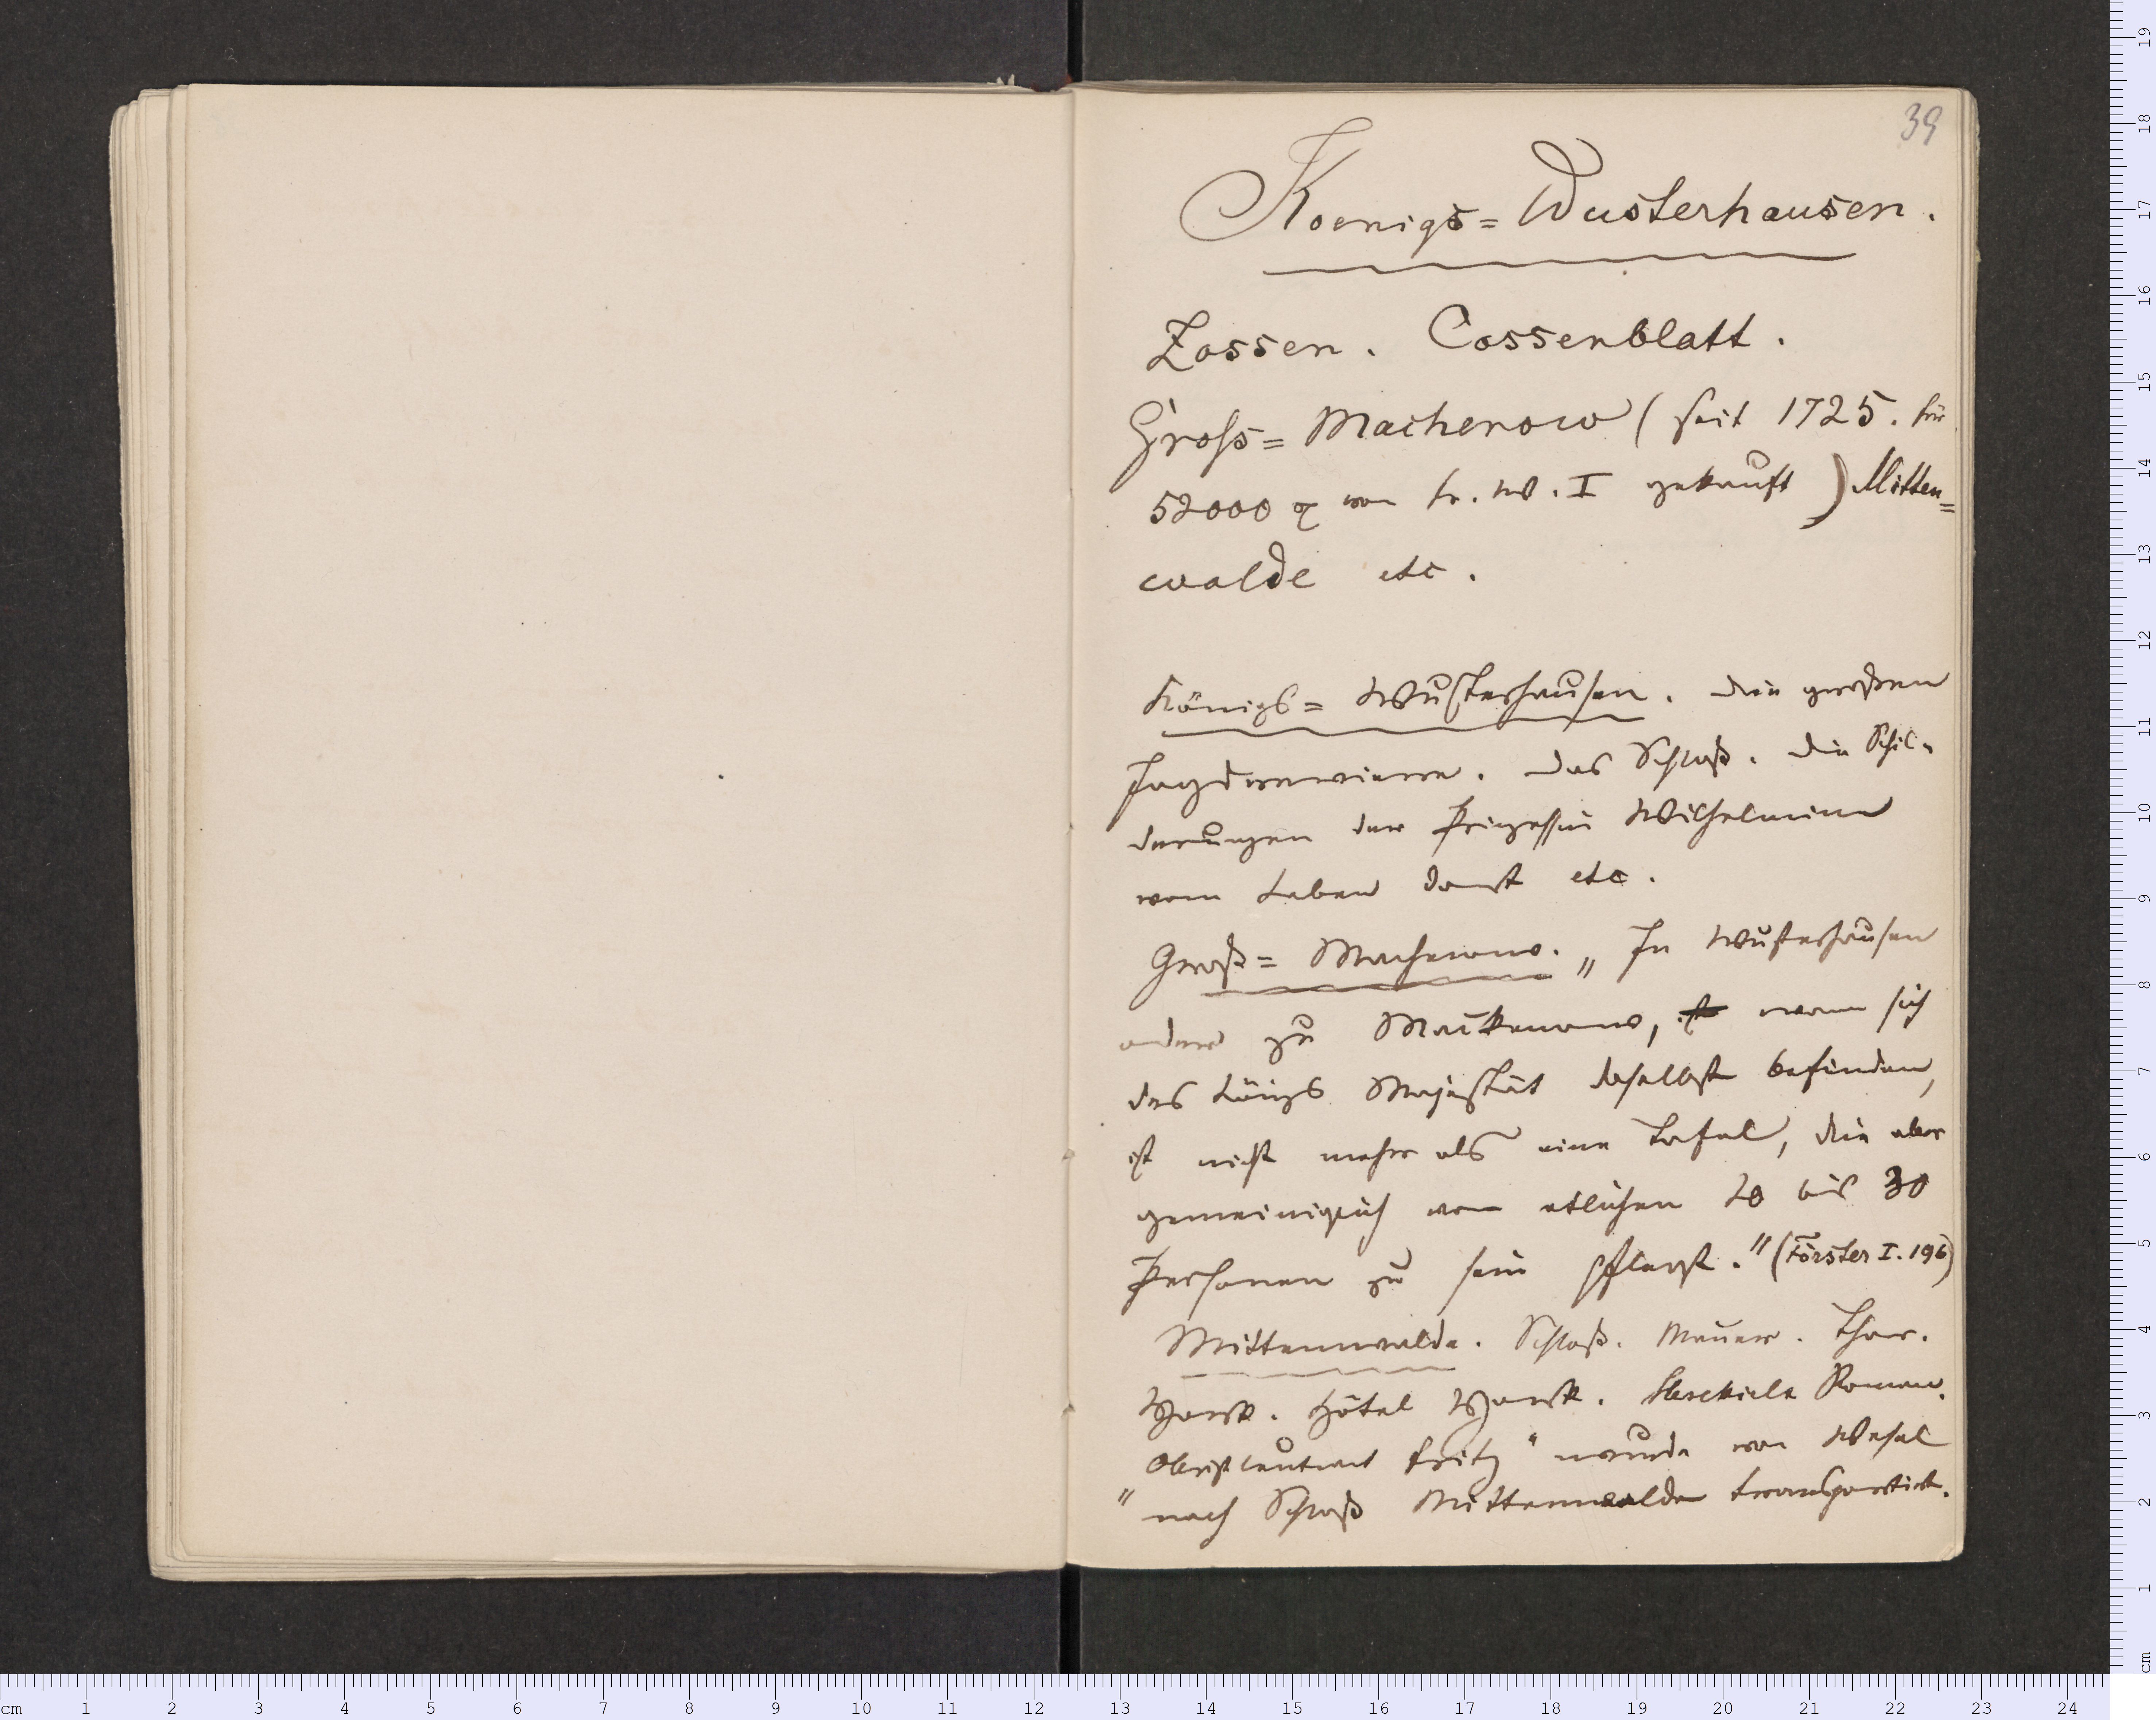 39
Koenigs=Wusterhausen.
Zossen. Cossenblatt.
Gross=Machenow (seit 1725. für
52000 rt von Fr. W. I gekauft) Mitten=
walde etc.
Königs=Wusterhausen. Die großen
Jagdreviere. Das Schloß. Die Schil-
derungen der Prinzessin Wilhelmine
vom Leben dort etc.
Groß=Machenow. „In Wusterhausen
oder zu Mackenow, ist wenn sich
des Königs Majestät daselbst befinden,
ist nicht mehr als eine Tafel, die aber
gemeiniglich von etlichen 20 bis 30
Personen zu sein pflegt." (Förster I. 196)
Mittenwalde. Schloß. Mauer. Thor.
York. Hôtel York. Hesekiels Roman.
„Oberstleutnant Fritz" wurde von Wesel
nach Schloß Mittenwalde transportirt.